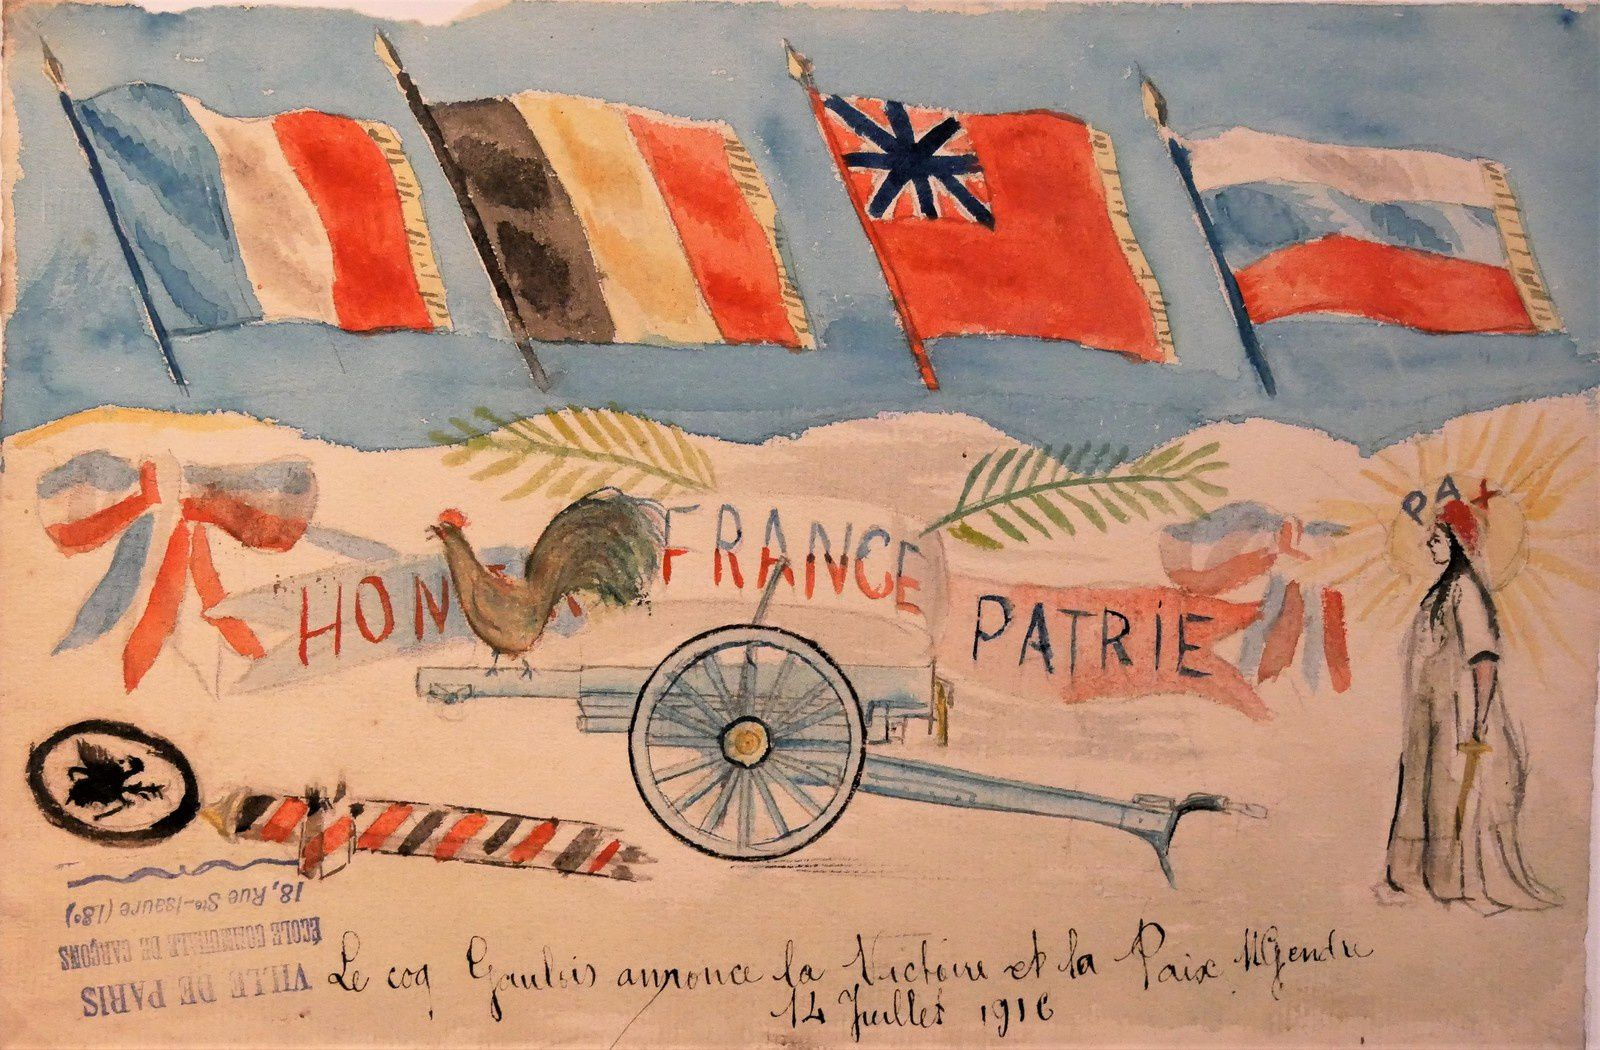 PAX
HON
FRANCE
PATRIE
Le coq Gaulois annonce la Victoire et la Paix MGendre
14 Juillet 1916
VILLE DE PARIS
ÉCOLE COMMUNALE DE GARÇONS
18, Rue Ste-Isaure (18e)